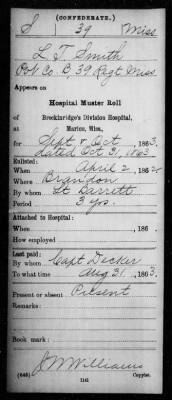 (CONFEDERATE.)
S 39 Miss
L T Smith
Pvt Co. B, 39 Regt Miss
Appears on
Hospital Muster Roll
of
Breckinridge's Division Hospital,
at Marion, Miss.,
for Sept & Oct, 1863.
Dated Oct 31, 1863
Enlisted:
When April 2, 1862.
Where Brandon
By whom Lt Barrett
Period 3 yrs.
Attached to Hospital:
When , 186 .
How employed
Last paid:
By whom Capt Decker
To what time Aug 31, 1863.
Present or absent Present
Remarks:
Book mark:
(645) Copyist.